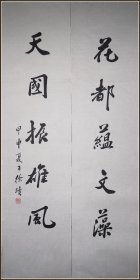 花都蘊文藻
天國振雄風
甲申夏月